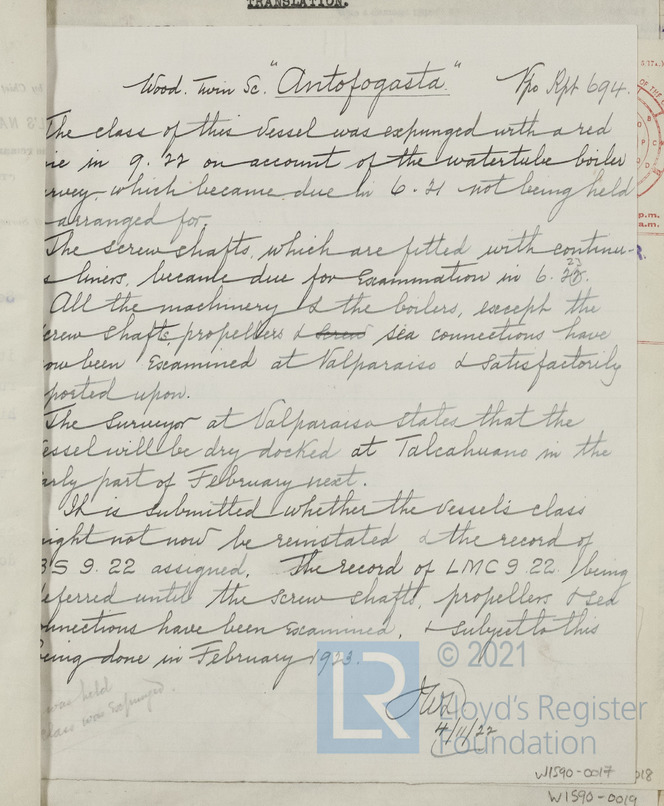 TRANSLATION.
Wood. Twin Sc. "Antofogasta" Vpo Rpt 694.
The class of this vessel was expunged with a red
ne in 9.22 on account of the watertube boiler
rvey, which became due in 6.21 not being held
arranged for.
The screwshafts, which are fitted with continu-
s liners, became due for Examination in 6.23
All the machinery & the boilers, except the
crew shafts, propellers & screw sea connections have
ow been Examined at Valparaiso & satisfactorily
ported upon.
The Surveyor at Valparaiso states that the
essel will be dry docked at Talcahuano in the
arly part of February next.
It is submitted whether the Vessel's class
ight not now be reinstated & the record of
BS 9.22 assigned. The record of LMC 9.22 being
eferred until the screw shafts, propellers & sea
onnections have been Examined, & subject to this
eing done in February 1923.
was held
class was Expunged.
4/11/22
LR
© 2021
Lloyd's Register
Foundation
W1590-0017
018
W1590-0019
p.m.
a.m.